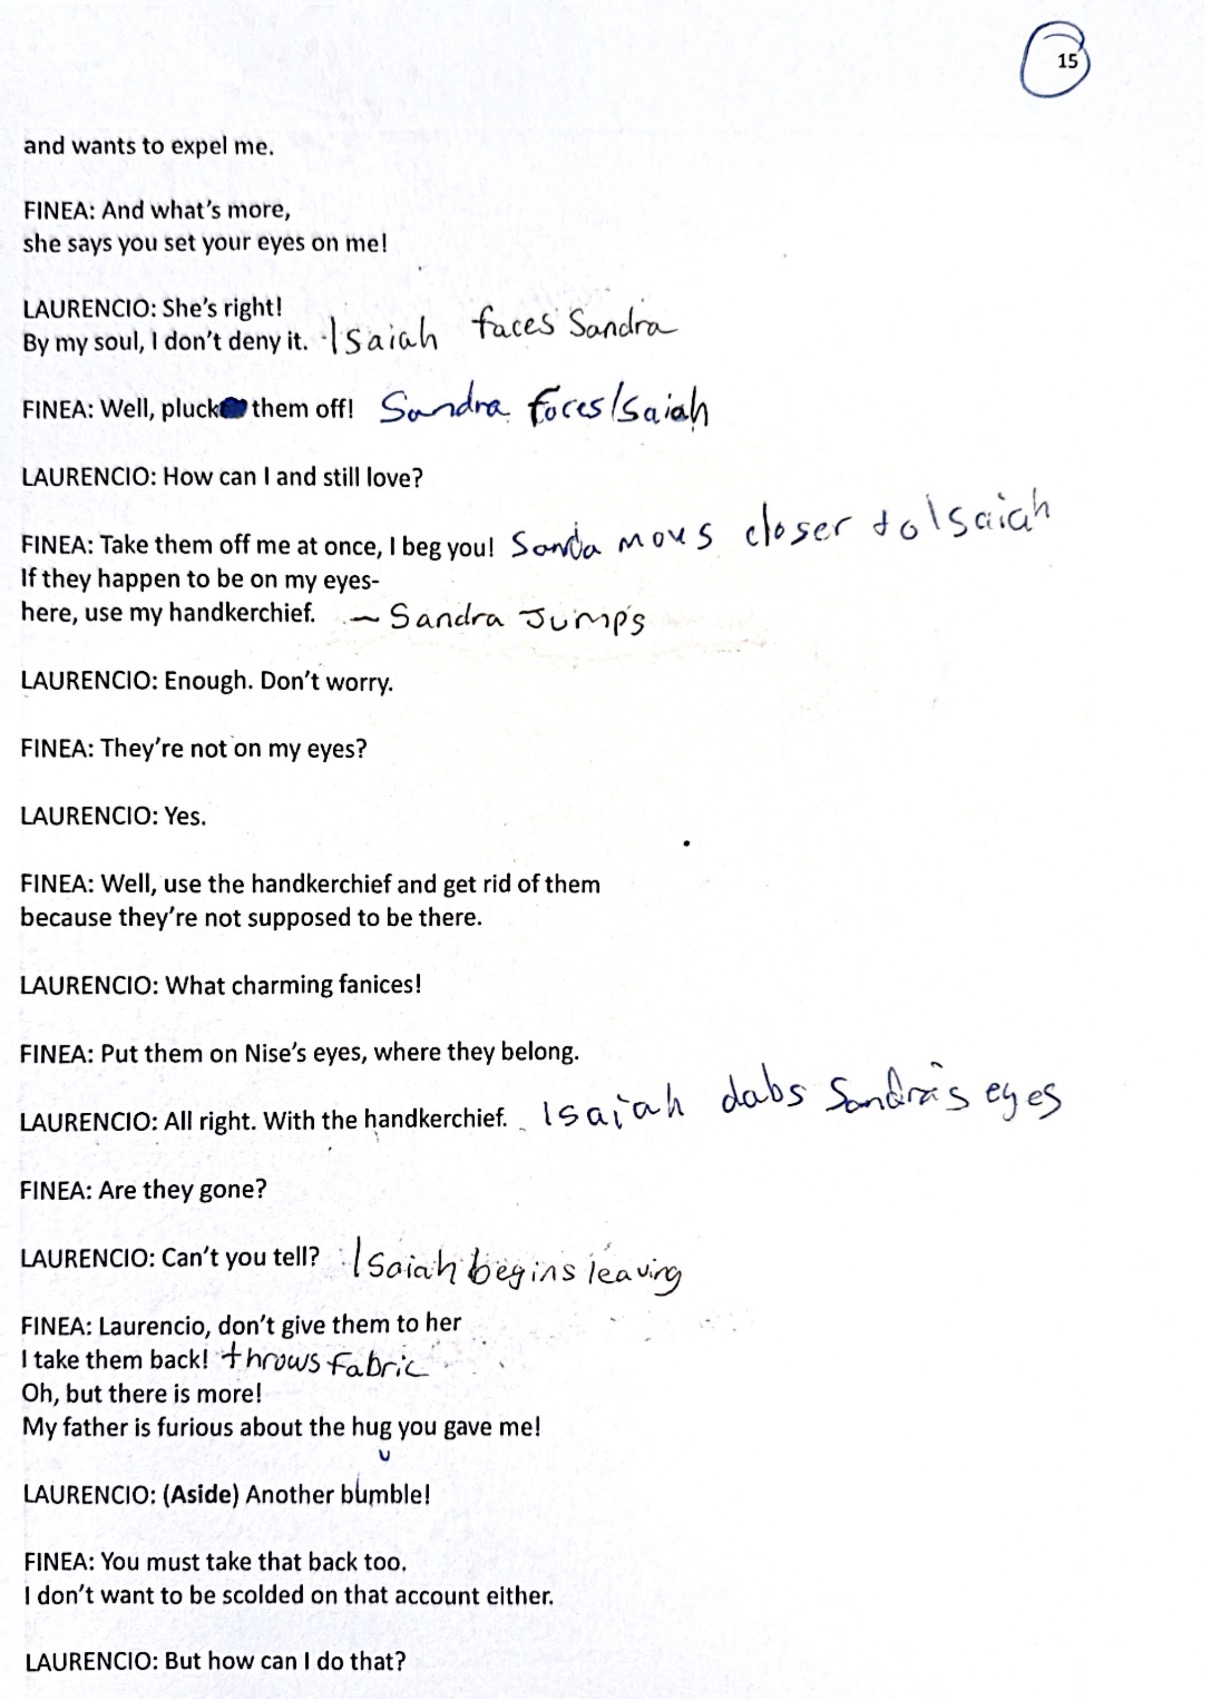 15
and wants to expel me.
FINEA: And what's more,
she says you set your eyes on me!
LAURENCIO: She's right!
By my soul, I don't deny it. Isaiah faces Sandra
FINEA: Well, pluck them off! Sandra faces Isaiah
LAURENCIO: How can I and still love?
FINEA: Take them off me at once, I beg you! Sanda movs closer to Isaiah
If they happen to be on my eyes-
here, use my handkerchief. – Sandra Jumps
LAURENCIO: Enough. Don't worry.
FINEA: They're not on my eyes?
LAURENCIO: Yes.
FINEA: Well, use the handkerchief and get rid of them
because they're not supposed to be there.
LAURENCIO: What charming fanices!
FINEA: Put them on Nise's eyes, where they belong.
LAURENCIO: All right. With the handkerchief. Isaiah dabs Sandra's eyes
FINEA: Are they gone?
LAURENCIO: Can't you tell? Isaiah begins leaving
FINEA: Laurencio, don't give them to her
I take them back! throws fabric
Oh, but there is more!
My father is furious about the hug you gave me!
LAURENCIO: (Aside) Another bumble!
FINEA: You must take that back too.
I don't want to be scolded on that account either.
LAURENCIO: But how can I do that?